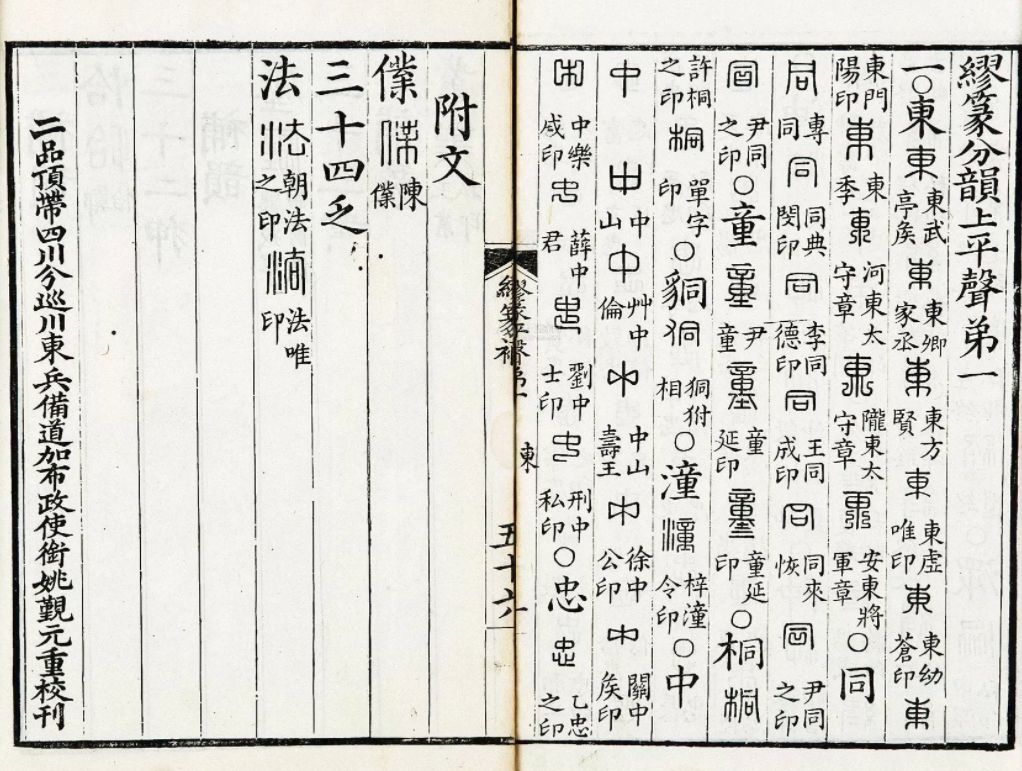 繆篆分韻上平聲弟一
一○東東東武亭矦東東鄉家丞東東方賢東東虛唯印東東幼蒼印東
東門陽印東東季東河東太守章東隴東太守章東安東將軍章○同
同專同同同典閔印同李同德印同王同成印同同來恢同尹同之印
同尹同之印○童童尹童童童延印童童延印○桐桐
許桐之印桐單字印○狪相○潼潼梓潼令印○中
中中中山中艸中倫中中山壽王中徐中公印中關中矦印
中中樂成印中薛中君中劉中士印中刑中私印○忠忠乙忠之印
繆篆 弟一 東 五十六
附文
僷僷陳僷
三十四乏
法法朝法之印法法唯印
二品頂帶四川分巡川東兵備道加布政使銜姚覲元重校刊